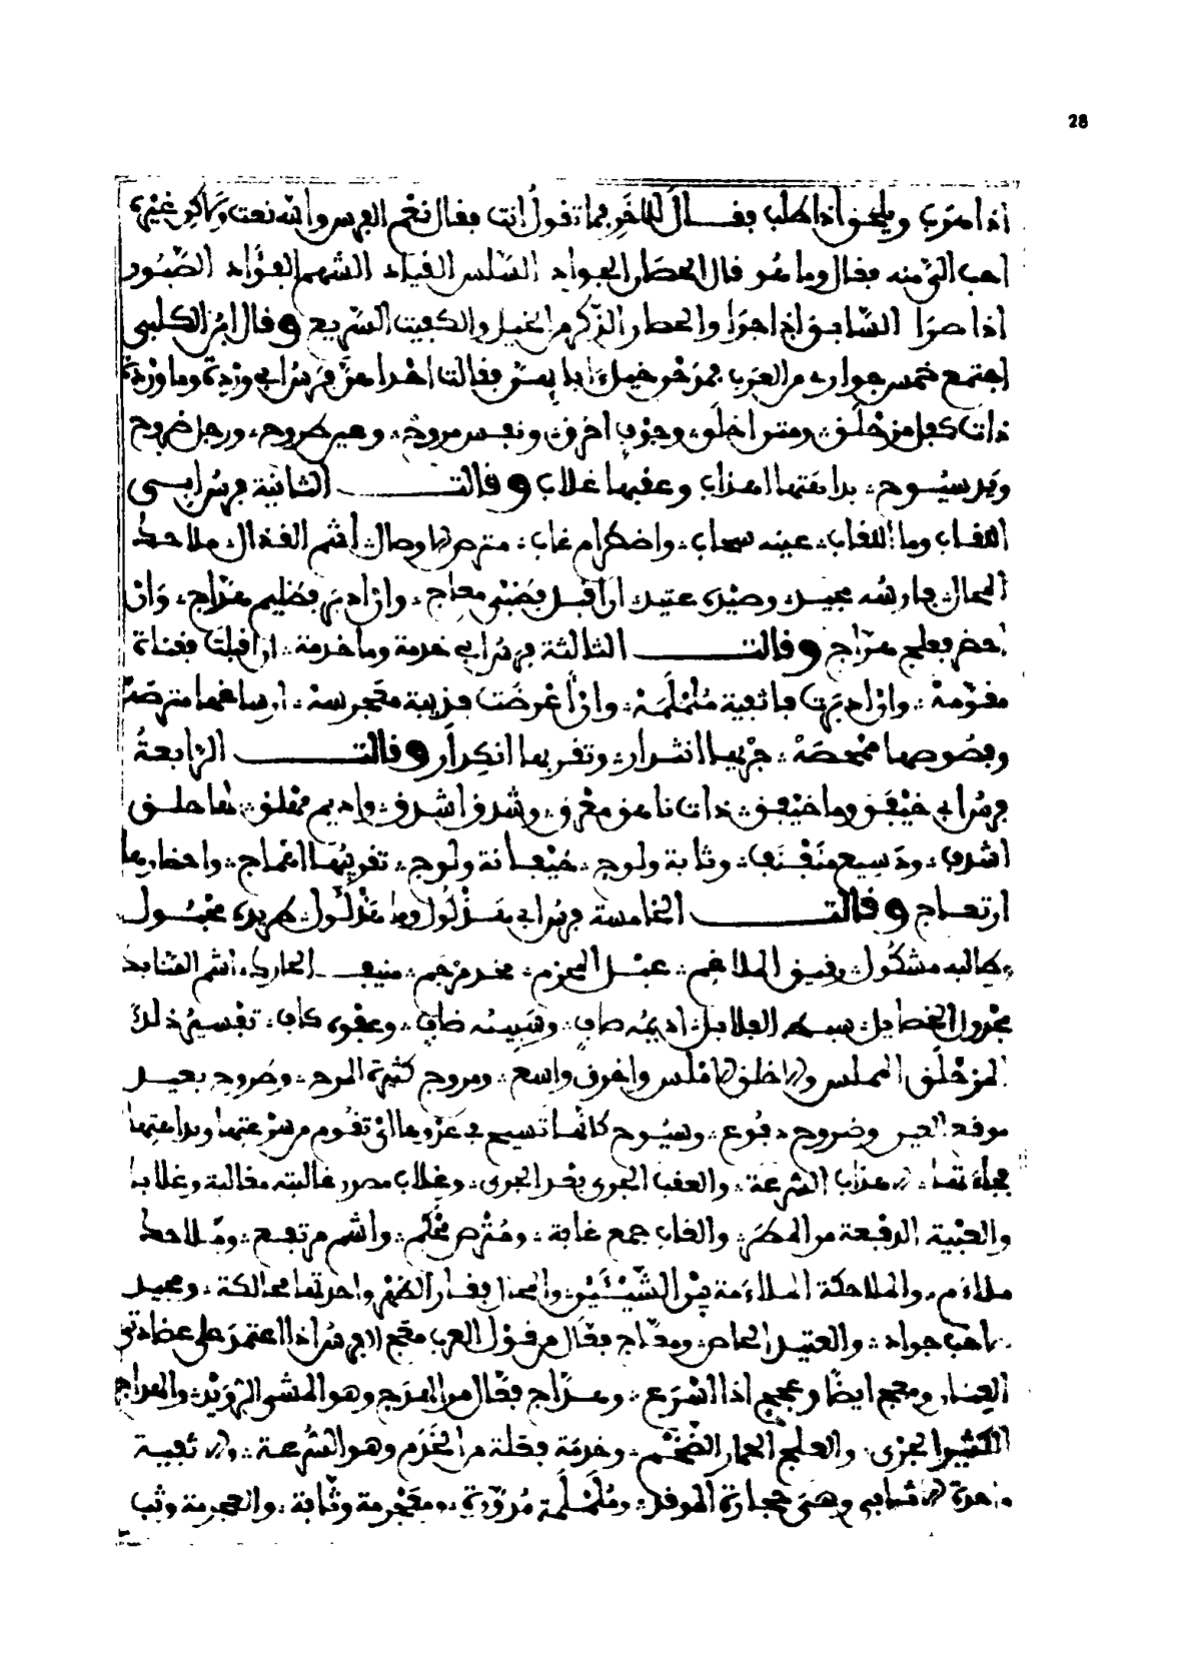 28
اذا هرب ويلحق اذا طلب فقال للاخر بما تقول انت فقال نعم الفرس والله نعت وذاكر غيره
احب الي منه فقال وما هو قال الحصان الجواد السلس القياد الشهم الفؤاد الصبور
اذا صرا السابق اذا جرا والحصان الذكر من الخيل والكميت السريع وقال ابن الكلبي
اجتمع خمس جوار من العرب خيل ابا فقالت احداهن فرس ابي وردة وما وردة
ذات كفل مزحلق ومتن اخلق وجوف اخوق ونفس مروح وعين طروح ورجل ضروح
ويد سبوح بداهتها اهذاب وعقبها غلاب وقالت الثانية فرس ابي
اللعاب وما اللعاب غبية سحاب واضطرام غاب مترص الاوصال اشم القذال ملاحك
المحال فارسه مجيد وصيده عتيد ان اقبل فظبي معاج وان ادبر فظليم هداج وان
احضر فعلج هراج وقالت الثالثة فرس ابي خدمة وما خدمة ان اقبلت فقناة
مقومة وان ادبرت فاثفية ململمة وان اعرضت فذيبة معجرمة ارساغها مترصة
وفصوصها ممحصة جريها انثرار وتقريبها انكدار وقالت الرابعة
فرس ابي خيفق وما خيفق ذات ناهق معرق وشدق اشدق واديم مملق لها خلق
اشدف ودسيع منفنف وثابة ولوج خيفانة ولوج تقريبها اهماج واحضارها
ارتعاج وقالت الخامسة فرس ابي هذلول وما هذلول طريده محبول
وطالبه مشكول رقيق الملاغم عبل المحزم مخد مرجم منيف الحارك اشم السنابك
مجدول الخصايل سبط الفلايل اديمه صاف وسبيبه ضاف وعفوه كاف تفسير ذلك
المزحلق المملس والاخلق الاملس واخوق واسع ومروح كثيرة المرح وطروح بعيد
موقع العين وضروح دفوع وسبوح كانها تسبح في عدوها التي تقوم من سرعتها وبداهتها
فجاءتها الاهذاب السرعة والعقب الجري بعد الجري وغلاب مصدر غالبته مغالبة وغلابا
والغبية الدفعة من المطر والغاب جمع غابة ومترص محكم واشم مرتفع وملاحك
ملاءم والملاحكة الملاءمة بين الشيئين والمحال فقار الظهر واحدتها محالة ومجيد
صاحب جواد والعتيد الحاضر ومعاج فعال من قول العرب معج الفرس اذا اعتمد على عضادتي
العنان ومعج ايضا وعجعج اذا اسرع وهداج فعال من الهدج وهو المشي الرويد والهراج
الكثير الجري والعلج الحمار الضخم وخدمة فعلة من الخدم وهو السرعة والاثفية
واحدة الاثافي وهي حجارة الموقد وململمة مدورة ومعجرمة وثابة والعجرمة وثب